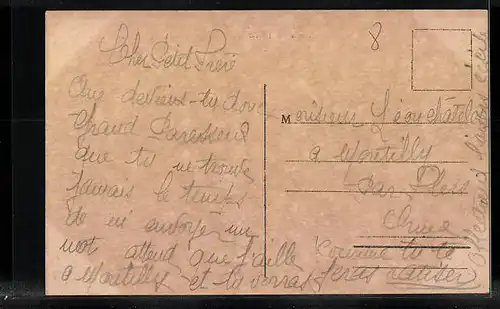 8
Cher Petit Frère
Que deviens-tu donc
Grand Paresseux
que tu ne trouve
jamais le temps
de m'envoyer un
mot attend que j'aille
a Montilly et tu verras
comme tu te
feras ratiser
Monsieur Léon
a Montilly
par Flers
Orne